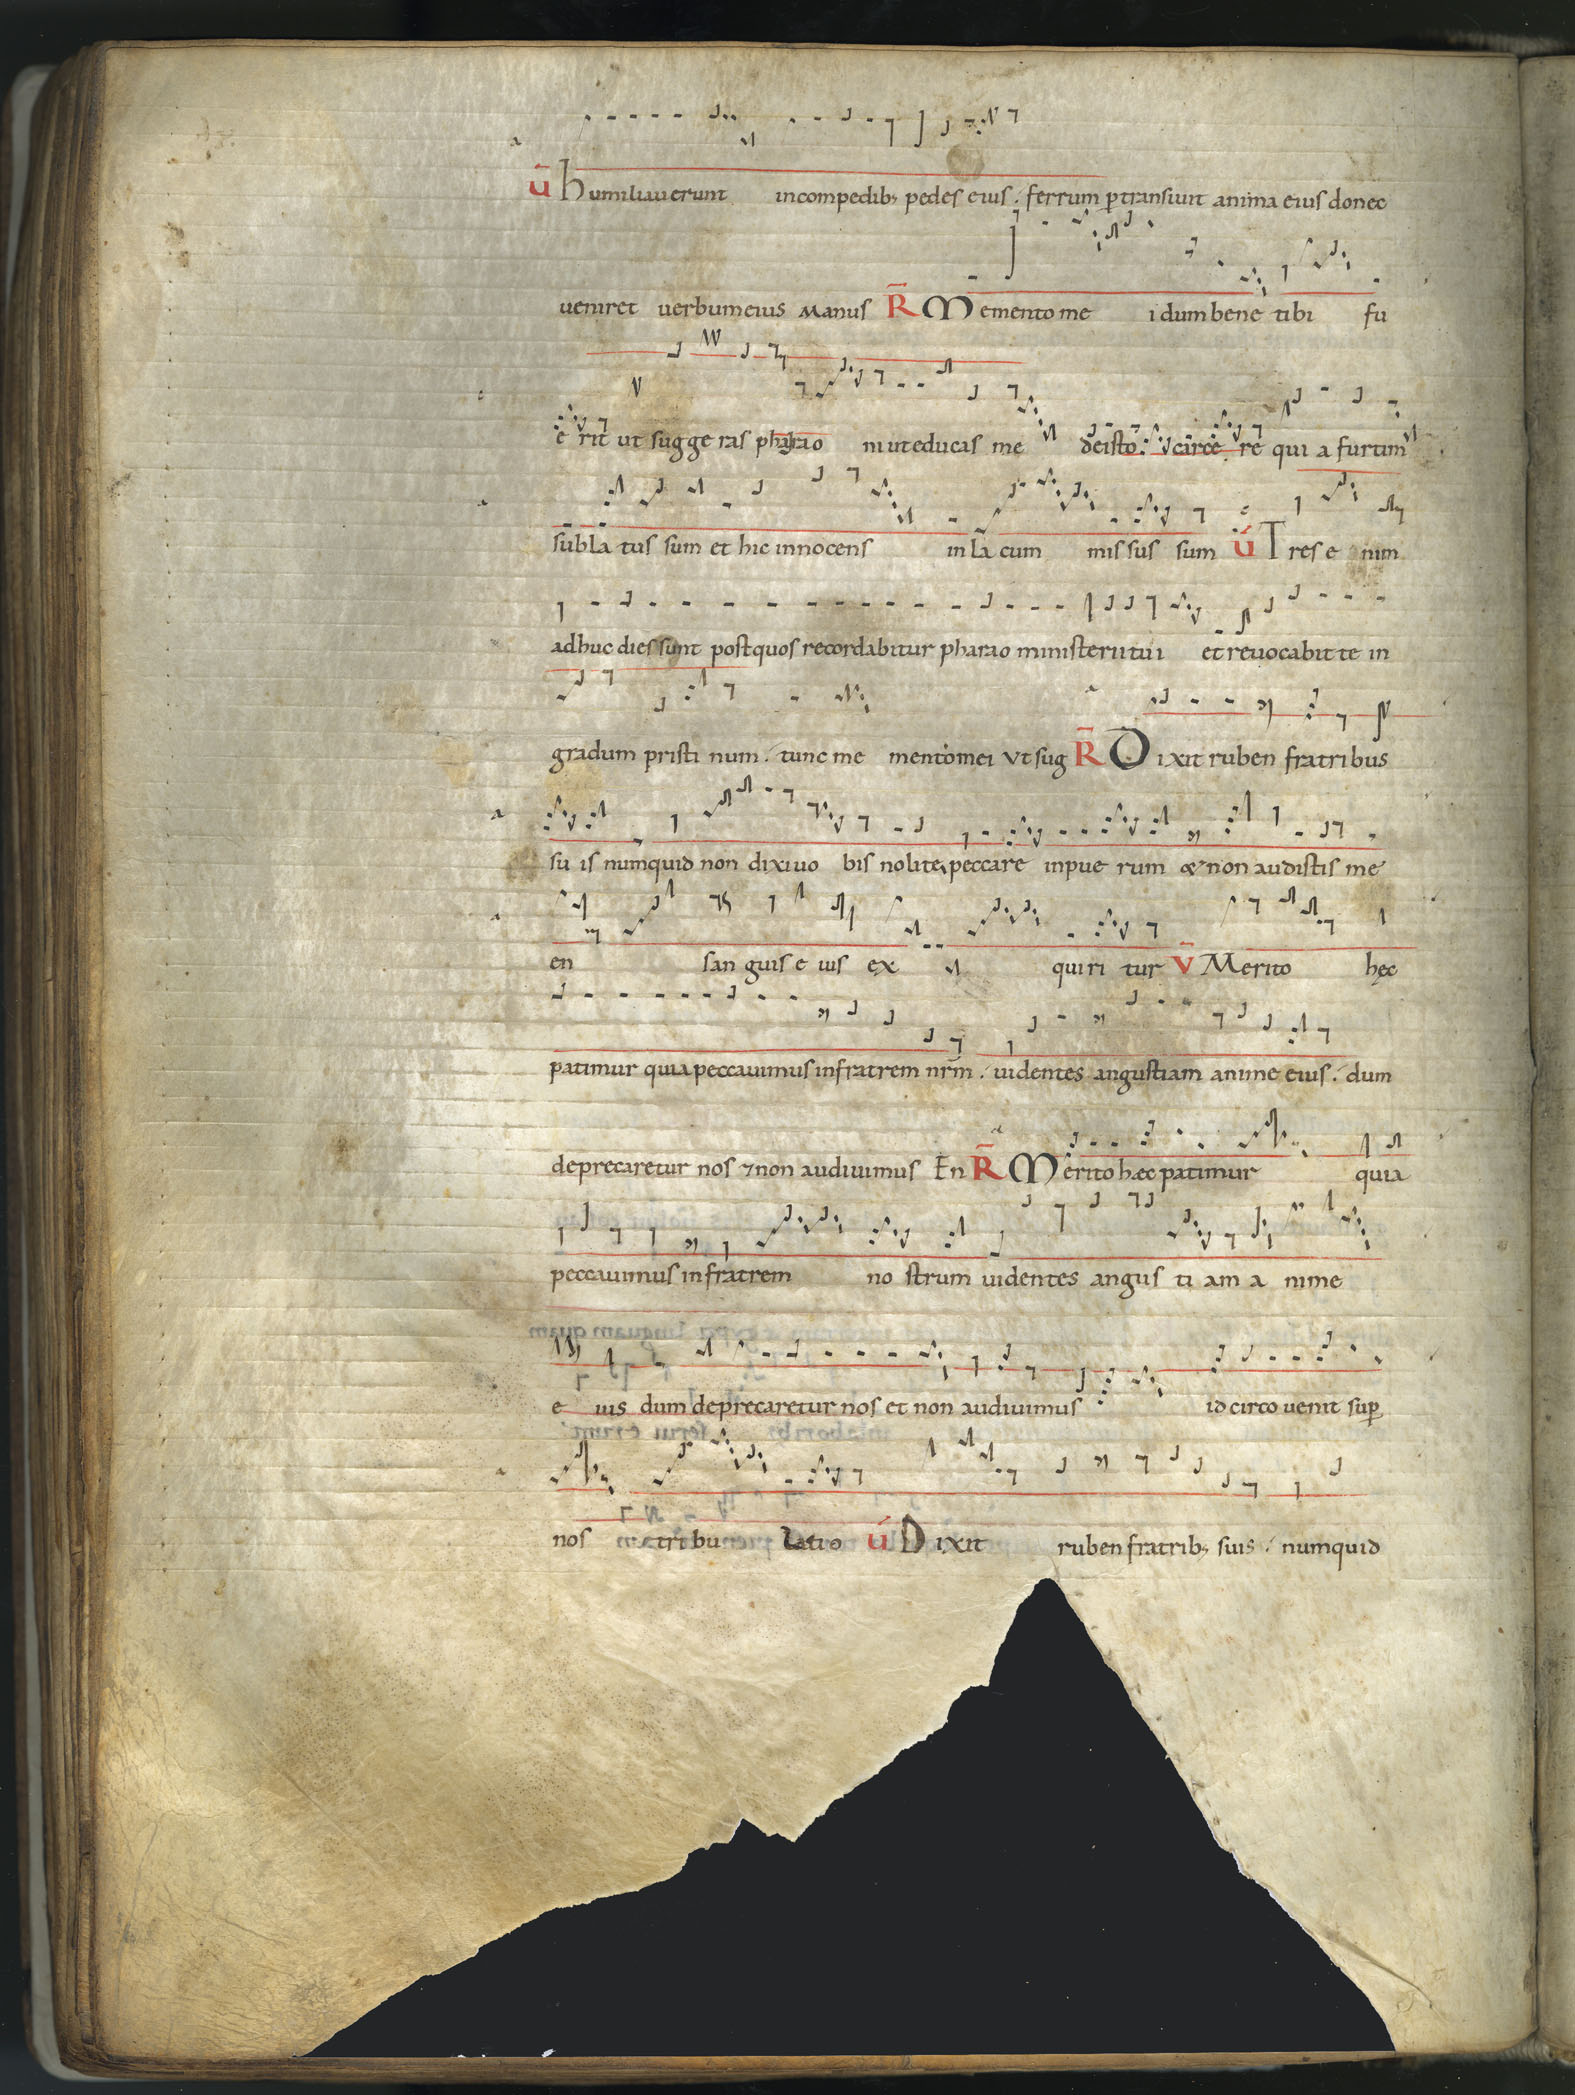 V̄ humiliauerunt incompedib; pedes eius . ferrum ꝑtransiuit anima eius donec
ueniret uerbumeius Manus R̄ Memento me i dum bene tibi fu
e rit ut sugge ras pharao ni uteducas me deisto carce re qui a furtim
subla tus sum et hic innocens in la cum mis sus sum V̄ Tres e nim
adhuc dies sunt postquos recordabitur pharao ministerii tui et reuocabit te in
gradum pristi num . tunc me mento mei vt sug R̄ Dixit ruben fratribus
su is numquid non dixi uo bis nolite peccare inpue rum & non audistis me
en san guis e ius ex quiri tur V̄ Merito hęc
patimur quia peccauimus infratrem nr̄m . uidentes angustiam anime eius . dum
deprecaretur nos ⁊ non audiuimus En R̄ Merito hæc patimur quia
peccauimus infratrem no strum uidentes angus ti am a nime
e ius dum deprecaretur nos et non audiuimus idcirco uenit suꝑ
nos tribu latio V̄ Dixit ruben fratrib; suis . numquid